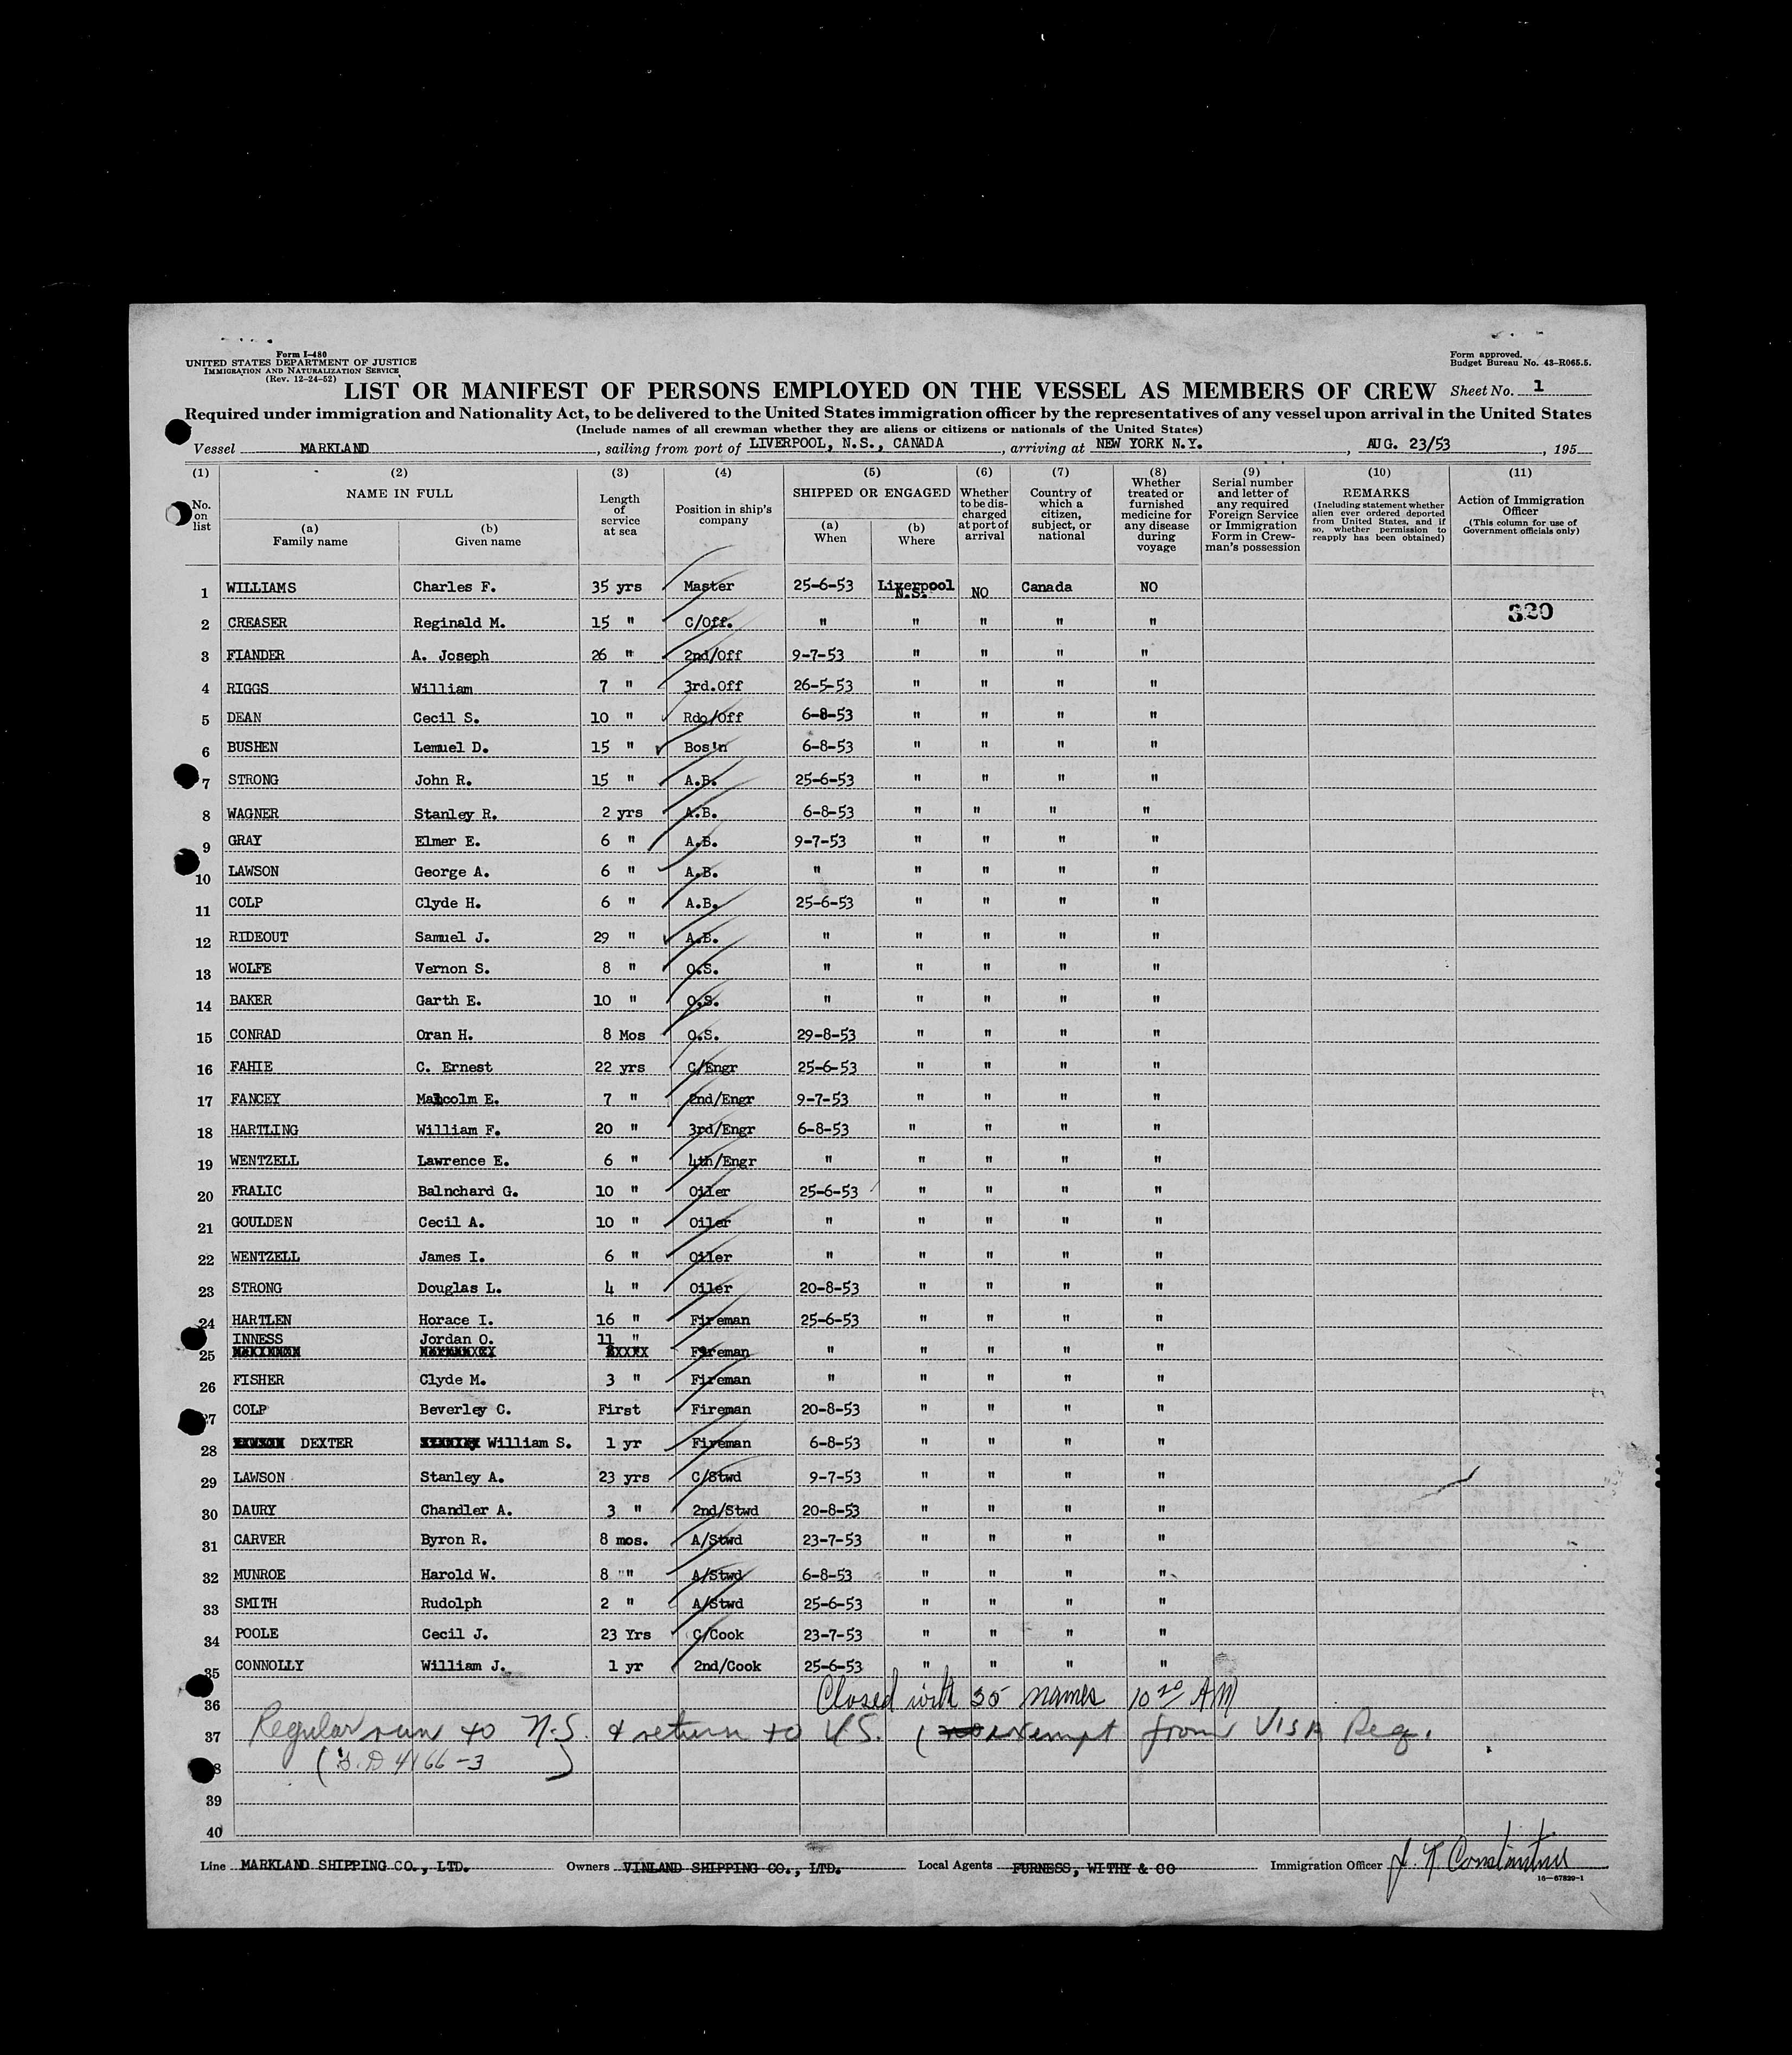 Form I-480
UNITED STATES DEPARTMENT OF JUSTICE
IMMIGRATION AND NATURALIZATION SERVICE
(Rev. 12-24-52)
Form approved.
Budget Bureau No. 43-R065.5.
LIST OR MANIFEST OF PERSONS EMPLOYED ON THE VESSEL AS MEMBERS OF CREW Sheet No. 1
Required under immigration and Nationality Act, to be delivered to the United States immigration officer by the representatives of any vessel upon arrival in the United States
(Include names of all crewman whether they are aliens or citizens or nationals of the United States)
Vessel MARKLAND, sailing from port of LIVERPOOL, N.S., CANADA, arriving at NEW YORK N.Y., AUG. 23/53, 195
(1) (2) (3) (4) (5) (6) (7) (8) (9) (10) (11)
No. on list
NAME IN FULL
(a) Family name
(b) Given name
Length of service at sea
Position in ship's company
SHIPPED OR ENGAGED
(a) When
(b) Where
Whether to be discharged at port of arrival
Country of which a citizen, subject, or national
Whether treated or furnished medicine for any disease during voyage
Serial number and letter of any required Foreign Service or Immigration Form in Crewman's possession
REMARKS
(Including statement whether alien ever ordered deported from United States, and if so, whether permission to reapply has been obtained)
Action of Immigration Officer
(This column for use of Government officials only)
1 WILLIAMS Charles F. 35 yrs Master 25-6-53 Liverpool N.S. NO Canada NO
320
2 CREASER Reginald M. 15 " C/Off. " " " " "
3 FIANDER A. Joseph 26 " 2nd/Off 9-7-53 " " " "
4 RIGGS William 7 " 3rd.Off 26-5-53 " " " "
5 DEAN Cecil S. 10 " Rdo/Off 6-8-53 " " " "
6 BUSHEN Lemuel D. 15 " Bos'n 6-8-53 " " " "
7 STRONG John R. 15 " A.B. 25-6-53 " " " "
8 WAGNER Stanley R. 2 yrs A.B. 6-8-53 " " " "
9 GRAY Elmer E. 6 " A.B. 9-7-53 " " " "
10 LAWSON George A. 6 " A.B. " " " " "
11 COLP Clyde H. 6 " A.B. 25-6-53 " " " "
12 RIDEOUT Samuel J. 29 " A.B. " " " " "
13 WOLFE Vernon S. 8 " O.S. " " " " "
14 BAKER Garth E. 10 " O.S. " " " " "
15 CONRAD Oran H. 8 Mos O.S. 29-8-53 " " " "
16 FAHIE C. Ernest 22 yrs C/Engr 25-6-53 " " " "
17 FANCEY Malcolm E. 7 " 2nd/Engr 9-7-53 " " " "
18 HARTLING William F. 20 " 3rd/Engr 6-8-53 " " " "
19 WENTZELL Lawrence E. 6 " 4th/Engr " " " " "
20 FRALIC Balnchard G. 10 " Oiler 25-6-53 " " " "
21 GOULDEN Cecil A. 10 " Oiler " " " " "
22 WENTZELL James I. 6 " Oiler " " " " "
23 STRONG Douglas L. 4 " Oiler 20-8-53 " " " "
24 HARTLEN Horace I. 16 " Fireman 25-6-53 " " " "
25 INNESS Jordan O. 11 " Fireman " " " " "
26 FISHER Clyde M. 3 " Fireman " " " " "
27 COLP Beverley C. First Fireman 20-8-53 " " " "
28 DEXTER William S. 1 yr Fireman 6-8-53 " " " "
29 LAWSON Stanley A. 23 yrs C/Stwd 9-7-53 " " " "
30 DAURY Chandler A. 3 " 2nd/Stwd 20-8-53 " " " "
31 CARVER Byron R. 8 mos. A/Stwd 23-7-53 " " " "
32 MUNROE Harold W. 8 "" A/Stwd 6-8-53 " " " "
33 SMITH Rudolph 2 " A/Stwd 25-6-53 " " " "
34 POOLE Cecil J. 23 Yrs C/Cook 23-7-53 " " " "
35 CONNOLLY William J. 1 yr 2nd/Cook 25-6-53 " " " "
36 Closed with 35 names 10 20 AM
37 Regular run to N.S. & return to U.S. (exempt from VISA Req.
38
39
40
Line MARKLAND SHIPPING CO., LTD. Owners VINLAND SHIPPING CO., LTD. Local Agents FURNESS, WITHY & CO Immigration Officer
16-67829-1